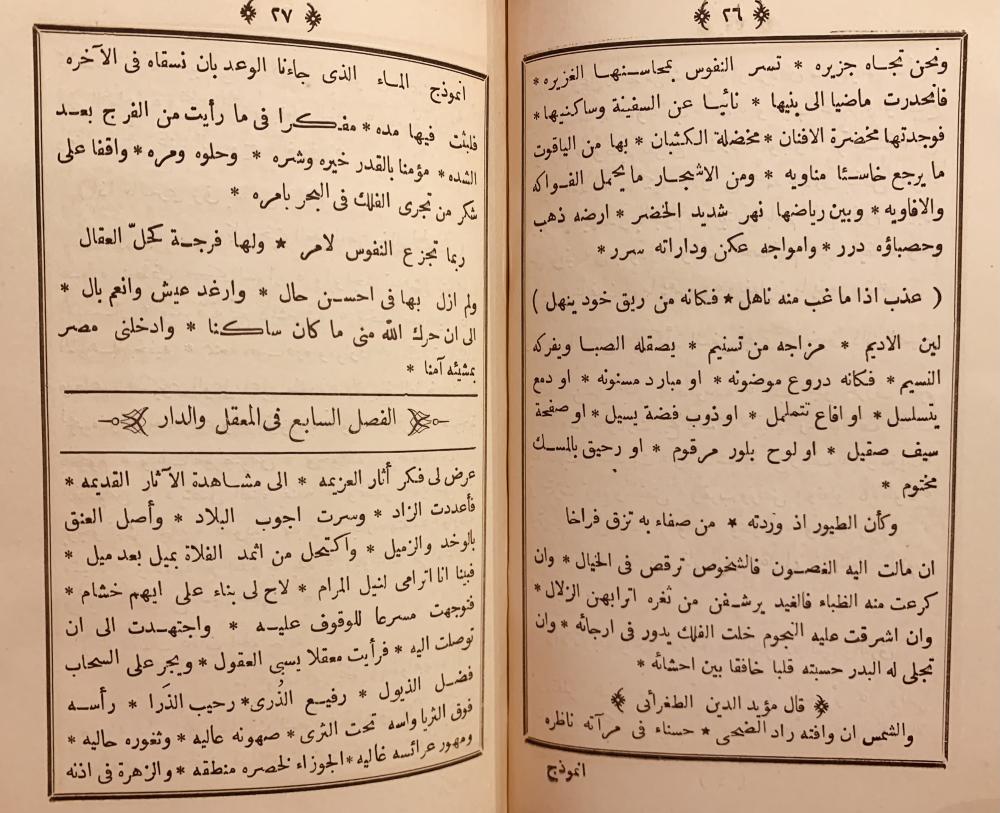 ٢٦
ونحن تجاه جزيره * تسر النفوس بمحاسنها الغزيره *
فانحدرت ماضيا الى بنيها * نائيا عن السفينة وساكنيها *
فوجدتها مخضرة الافنان * مخضلة الكشبان * بها من الياقوت
ما يرجع خاسئا مناويه * ومن الاشجار ما يحمل الفواكه
والافاويه * وبين رياضها نهر شديد الخضر * ارضه ذهب
وحصباؤه درر * وامواجه عكن وداراته سرر *
( عذب اذا ما غب منه ناهل * فكانه من ريق خود ينهل )
لين الاديم * مزاجه من تسنيم * يصقله الصبا ويفركه
النسيم * فكانه دروع موضونه * او مبارد مسنونه * او دمع
يتسلسل * او افاع تتململ * او ذوب فضة يسيل * او صفحة
سيف صقيل * او لوح بلور مرقوم * او رحيق بالمسك
مختوم *
وكأن الطيور اذ وردته * من صفاء به تزق فراخا
ان مالت اليه الغصون فالشخوص ترقص فى الخيال * وان
كرعت منه الظباء فالغيد يرشفن من ثغره اترابهن الزلال *
وان اشرقت عليه النجوم خلت الفلك يدور فى ارجائه * وان
تجلى له البدر حسبته قلبا خافقا بين احشائه *
قال مؤيد الدين الطغرائى
والشمس ان وافته راد الضحى * حسناء فى مرآته ناظره
انموذج
٢٧
انموذج الماء الذى جاءنا الوعد بان نسقاه فى الآخره
فلبثت فيها مده * مفكرا فى ما رأيت من الفرج بعد
الشده * مؤمنا بالقدر خيره وشره * وحلوه ومره * واقفا على
شكر من تجرى الفلك فى البحر بامره *
ربما تجزع النفوس لامر * ولها فرجة كحلّ العقال
ولم ازل بها فى احسن حال * وارغد عيش وانعم بال *
الى ان حرك الله منى ما كان ساكنا * وادخلنى مصر
بمشيئه آمنا *
الفصل السابع فى المعقل والدار
عرض لى فكر أثار العزيمه * الى مشاهدة الآثار القديمه *
فأعددت الزاد * وسرت اجوب البلاد * وأصل العنق
بالوخد والزميل * واكتحل من اثمد الفلاة بميل بعد ميل *
فبينا انا اترامى لنيل المرام * لاح لى بناء على ايهم خشام *
فتوجهت مسرعا للوقوف عليه * واجتهدت الى ان
توصلت اليه * فرأيت معقلا يسبى العقول * ويجر على السحاب
فضل الذيول * رفيع الذُرى * رحيب الذَرا * رأسه
فوق الثريا واسه تحت الثرى * صهونه عاليه * وثغوره حاليه *
ومهور عرائسه غاليه * الجوزاء لخصره منطقه * والزهرة فى اذنه